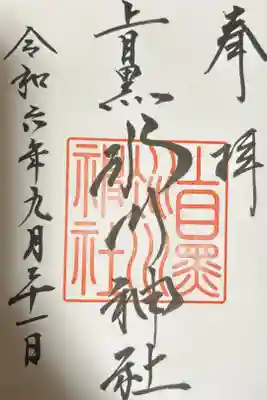 奉拝
上目黒氷川神社
上目黒
氷川
神社
令和六年九月二十一日